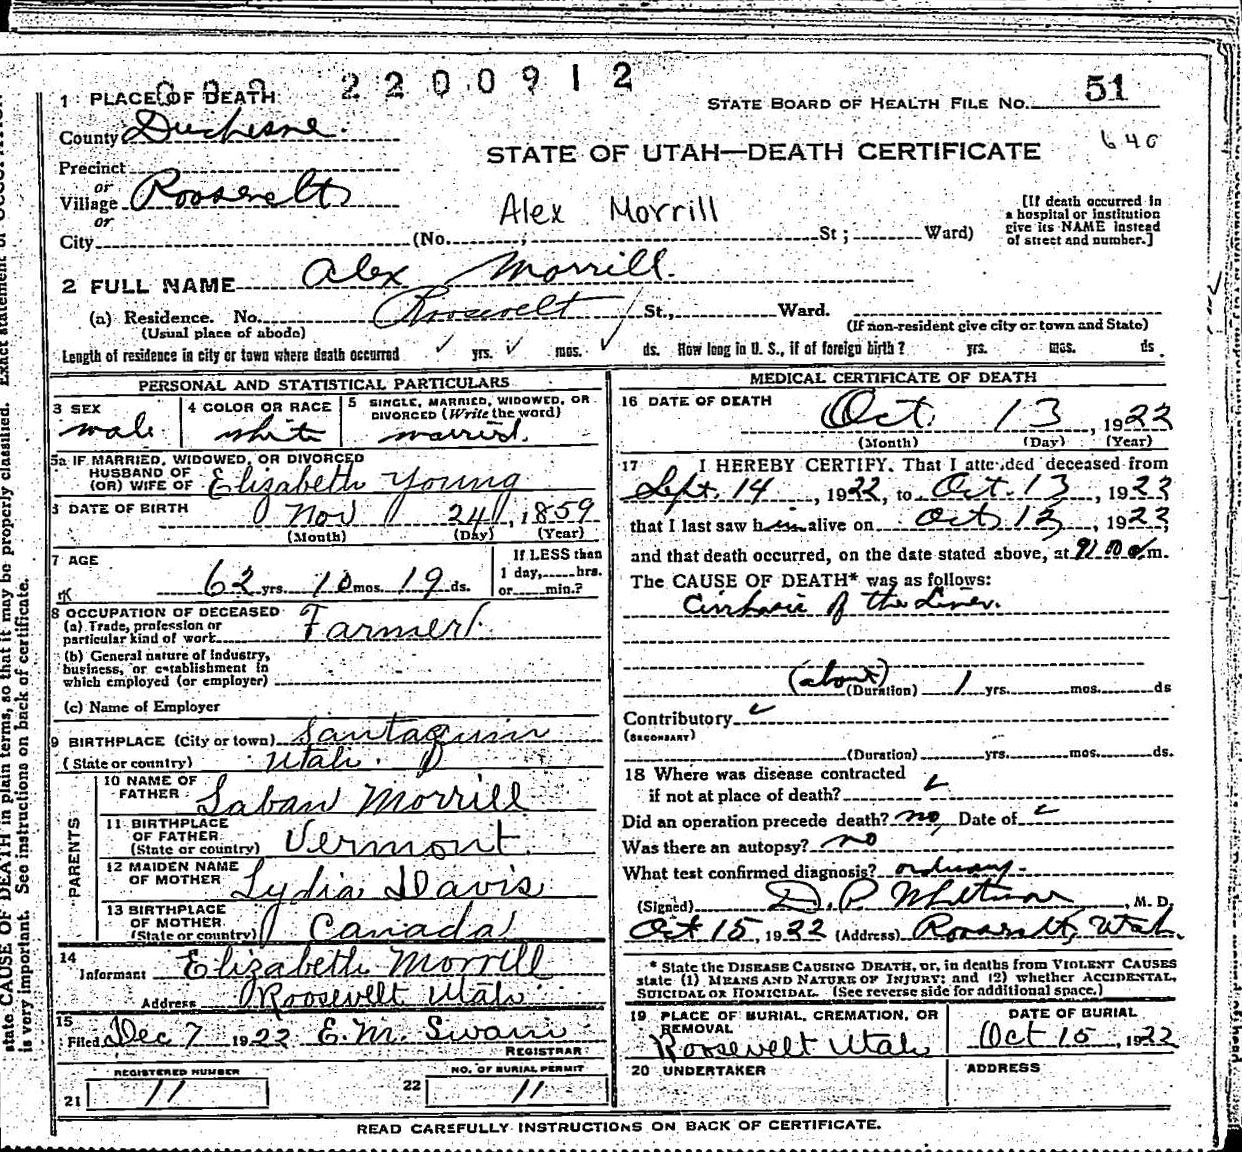 2200912
1 PLACE OF DEATH
STATE BOARD OF HEALTH FILE No. 51
County Duchesne.
640
STATE OF UTAH—DEATH CERTIFICATE
Precinct
or
Village Roosevelt
or
Alex Morrill
[If death occurred in a hospital or institution give its NAME instead of street and number.]
City (No. ; St; Ward)
2 FULL NAME Alex Morrill.
(a) Residence. No. Roosevelt St., Ward.
(Usual place of abode) (If non-resident give city or town and State)
Length of residence in city or town where death occurred ✓ yrs. ✓ mos. ✓ ds. How long in U. S., if of foreign birth? yrs. mos. ds.
PERSONAL AND STATISTICAL PARTICULARS
3 SEX male
4 COLOR OR RACE white
5 SINGLE, MARRIED, WIDOWED, OR DIVORCED (Write the word) married.
5a IF MARRIED, WIDOWED, OR DIVORCED
HUSBAND OF
(OR) WIFE OF Elizabeth Young
DATE OF BIRTH Nov 24, 1859
(Month) (Day) (Year)
7 AGE 62 yrs. 10 mos. 19 ds.
If LESS than 1 day, hrs. or min.?
8 OCCUPATION OF DECEASED
(a) Trade, profession or particular kind of work Farmer
(b) General nature of industry, business, or establishment in which employed (or employer)
(c) Name of Employer
9 BIRTHPLACE (City or town) Santaquin
(State or country) Utah.
PARENTS
10 NAME OF FATHER Laban Morrill
11 BIRTHPLACE OF FATHER (State or country) Vermont.
12 MAIDEN NAME OF MOTHER Lydia Davis
13 BIRTHPLACE OF MOTHER (State or country) Canada
14 Informant Elizabeth Morrill
Address Roosevelt Utah
15 Filed Dec 7 1922 E. M. Swain
REGISTRAR
21 REGISTERED NUMBER 11
22 NO. OF BURIAL PERMIT 11
MEDICAL CERTIFICATE OF DEATH
16 DATE OF DEATH Oct. 13, 1922
(Month) (Day) (Year)
17 I HEREBY CERTIFY. That I attended deceased from
Sept. 14, 1922, to Oct. 13, 1922
that I last saw him alive on Oct 13, 1922,
and that death occurred, on the date stated above, at m.
The CAUSE OF DEATH* was as follows:
Cirrhosis of the Liver.
(about) (Duration) 1 yrs. mos. ds
Contributory ✓
(SECONDARY)
(Duration) yrs. mos. ds.
18 Where was disease contracted
if not at place of death? ✓
Did an operation precede death? no, Date of ✓
Was there an autopsy? no
What test confirmed diagnosis? ordinary.
(Signed) D. P. Whitmore, M. D.
Oct 15, 1922 (Address) Roosevelt, Utah.
* State the DISEASE CAUSING DEATH, or, in deaths from VIOLENT CAUSES
state (1) MEANS AND NATURE OF INJURY; and (2) whether ACCIDENTAL,
SUICIDAL OR HOMICIDAL. (See reverse side for additional space.)
19 PLACE OF BURIAL, CREMATION, OR REMOVAL
Roosevelt Utah
DATE OF BURIAL
Oct 15, 1922
20 UNDERTAKER
ADDRESS
READ CAREFULLY INSTRUCTIONS ON BACK OF CERTIFICATE.
state CAUSE OF DEATH in plain terms, so that it may be properly classified. Exact statement of OCCUPATION
is very important. See instructions on back of certificate.